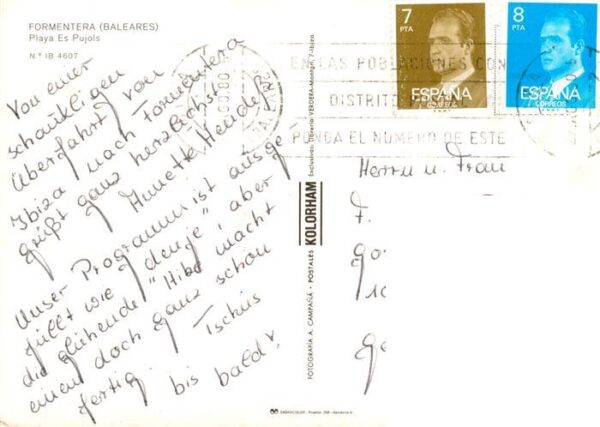 FORMENTERA (BALEARES)
Playa Es Pujols
N.º IB 4607
Von einer
schaukligen
Überfahrt von
Ibiza nach Formentera
grüßt ganz herzlichst
Annette
Unser Programm ist ausge
füllt wie "denje", aber
die glühende Hitze macht
einen doch ganz schön
fertig. Tschüs
bis bald!
7
PTA
ESPAÑA
CORREOS
8
PTA
ESPAÑA
CORREOS
EN LAS POBLACIONES CON
DISTRITOS
PONGA EL NUMERO DE ESTE
Herrn u. Frau
F.
FOTOGRAFIA A. CAMPAÑÁ - POSTALES KOLORHAM